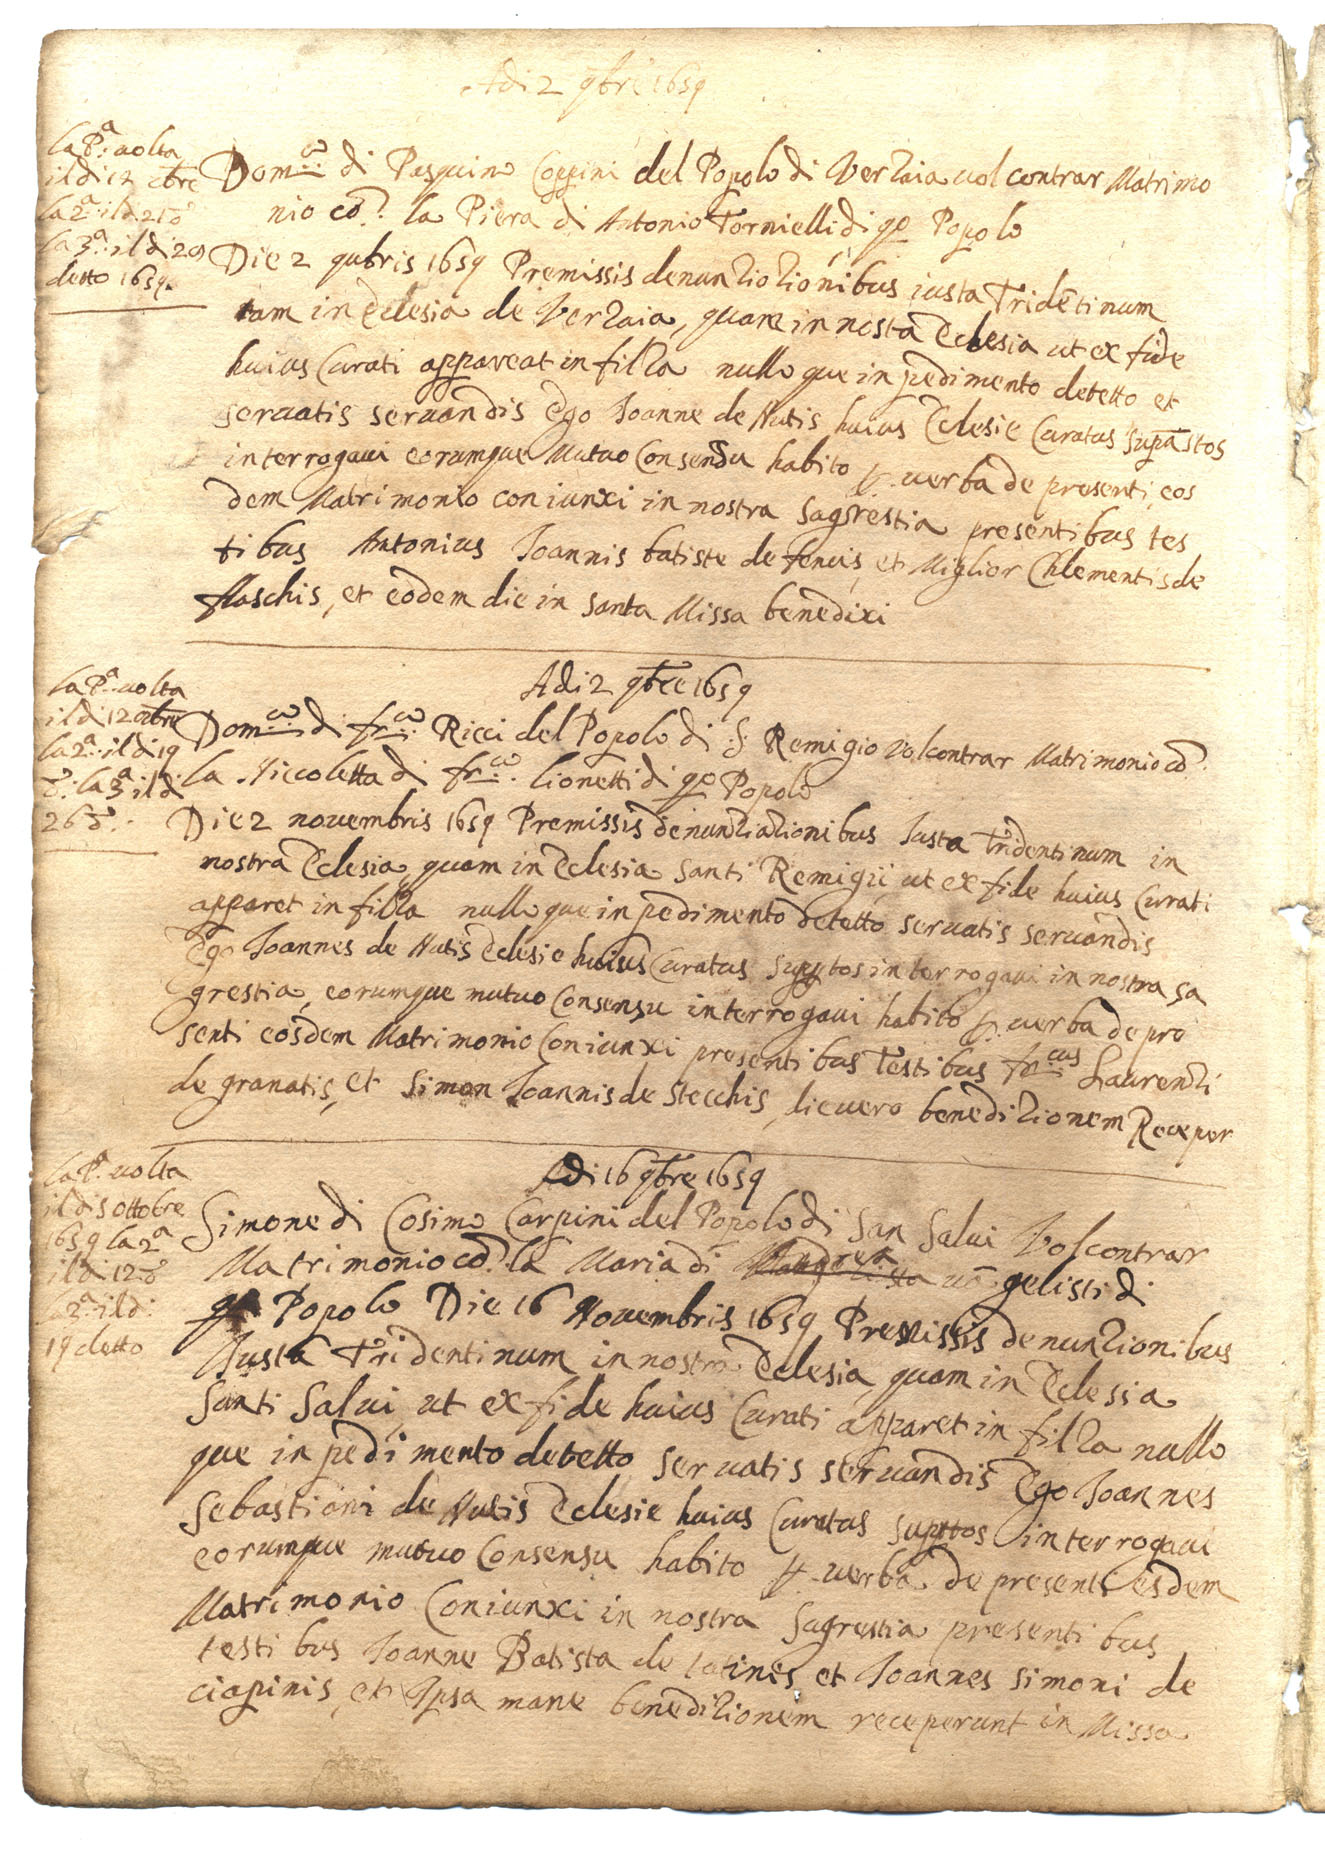 Adi 2 9bre 1659
la Pa: uolta
il di 12 8bre
la 2a: il d. 21 do
la 3a: il di 29
detto 1659.
Domco: di Pasquino Coppini del Popolo di Verzaia uol contrar Matrimo
nio co. la Piera di Antonio Tornielli di qo Popolo
Die 2 9ubris 1659 Premissis denunziozionibus iusta Tridetinum
tam in Eclesia de Verzaia, quam in nosta Eclesia ut ex fide
huius Curati appareat in filza nullo que inpedimento detetto et
seruatis seruandis Ego Ioanne de Nutis huius Eclesie Curatus supastos
interrogaui eorumque Mutuo Consensu habito p. uerba de presenti, eos
dem Matrimonio coniunxi in nostra sagrestia presentibus tes
tibus Antonius Ioannis batiste de fencis, et Miglior Chlementis de
flaschis, et eodem die in santa Missa benedixi
Adi 2 9bre 1659
la Pa. uolta
il di 12 8bre
la 2a: il di 19
do. la 3a il di
26 do.
Domco: di frco: Ricci del Popolo di S. Remigio Vol contrar Matrimonio co.
la Niccoletta di frco: lionetti di qo Popolo
Die 2 nouembris 1659 Premissis denunziazionibus Iusta Tridentinum in
nostra Eclesia, quam in Eclesia santi Remigii ut ex fide huius Curati
apparet in filza nullo que inpedimento detetto seruatis seruandis
Ego Ioannes de Nutis Eclesie huius Curatus supptos interrogaui in nostra sa
grestia, eorumque mutuo Consensu interrogaui habito p. uerba de pre
senti eosdem Matrimonio Coniunxi presentibus Testibus frcus Laurenzi
de granatis, et Simon Ioannis de stecchis, die uero benedizionem Receper
Adi 16 9bre 1659
la Pa. uolta
il di 5 ottobre
1659 la 2a
il di 12 do
la 3a: il di
19 detto
Simone di Cosimo Carpini del Popolo di San Salui Vol contrar
Matrimonio co. la Maria di uangelisti di
qo Popolo Die 16 Nouembris 1659 Premissis denunzionibus
Iusta Tridentinum in nostra Eclesia, quam in Eclesia
Santi Salui, ut ex fide huius Curati apparet in filza nullo
que inpedimento detetto seruatis seruandis Ego Ioannes
Sebastiani de Nutis Eclesie huius Curatus supptos interrogaui
eorumque mutuo Consensu habito p. uerba de presenti esdem
Matrimonio Coniunxi in nostra sagrestia presentibus
testibus Ioanne Batista de latinis et Ioannes simoni de
ciapinis, et Ipsa mane benedizionem receperunt in Missa